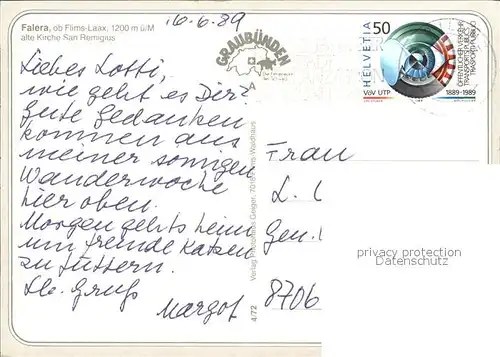 Falera, ob Flims-Laax, 1200 m ü/M
alte Kirche San Remigius
16.6.89
GRAUBÜNDEN
HELVETIA
50
VöV UTP
1889-1989
ÖFFENTLICHER VERKEHR
TRANSPORTS PUBLICS
TRASPORTI PUBBLICI
Liebes Lotti,
wie geht es Dir?
Gute Gedanken
kommen aus
meiner sonnigen
Wanderwoche
hier oben.
Morgen gehts heim
um fremde Katzen
zu füttern.
Lb. Gruß
Margot
4/72
Verlag Geiger, Flims-Waldhaus
Frau
L.
Gen.
8706
privacy protection
Datenschutz